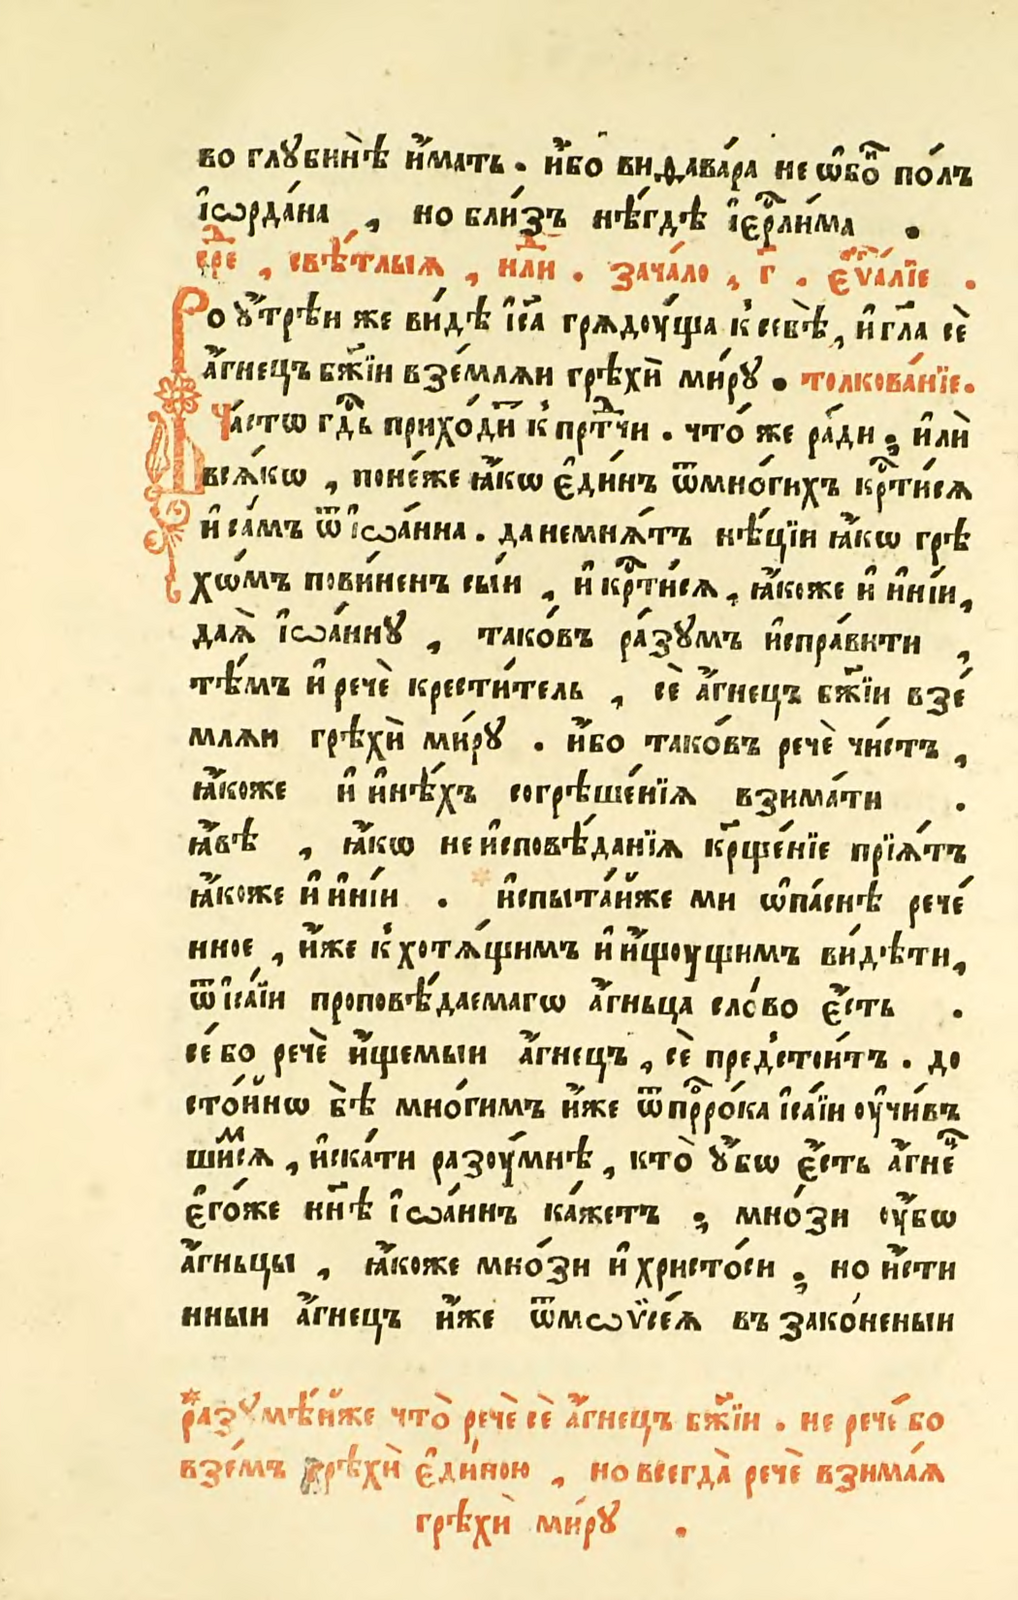 во глꙋбинѣ̀ и҆́мать . и҆́бо виѳава́ра не ѡ҆бо́ⷩ҇ по́лъ
і҆ѡрда́на , но бли́зъ нѣ́гдѣ і҆ерⷭ҇ли́ма .
сре́ⷣ , свѣ́тлыѧ , нлⷣи . зача́ло , г҃ . є҆ѵⷢ҇а́лїе .
Во ᲂу҆́трѣи же ви́дѣ і҆с҃а грѧдꙋ́ща к̾ себѣ̀ , и҆ гл҃а се̏
а҆́гнецъ бж҃їи взе́млѧи грѣхѝ ми́рꙋ . толкова́нїе .
Ча́стѡ гдⷭ҇ь прихо́дⷮи к̾ прⷣтчи . что́ же ра́ди ; и҆лѝ
всѧ́кѡ , поне́же ꙗ҆́кѡ є҆ди́нъ ѿмно́гихъ крⷭ҇ти́сѧ
и҆ са́мъ ѿ і҆ѡа́нна . да немнѧ́тъ нѣ́цїи ꙗ҆́кѡ грѣ
хѡ́мъ пови́ненъ сы́и , и҆ крⷭ҇ти́сѧ , ꙗ҆́коже и҆ и҆ні́и ,
даѧ̀ і҆ѡа́ннꙋ , тако́въ ра́зꙋмъ и҆спра́вити ,
тѣ́мъ и҆ речѐ крести́тель , сѐ а҆́гнецъ бж҃їи взе́
млѧи грѣхѝ ми́рꙋ . и҆́бо тако́въ речѐ чи́стъ ,
ꙗ҆́коже и҆ и҆нѣ́хъ согрѣше́нїѧ взима́ти .
ꙗ҆́вѣ , ꙗ҆́кѡ не и҆сповѣ́данїѧ крⷭ҇ще́нїе прїѧ́тъ
ꙗ҆́коже и҆ и҆ні́и . * и҆спыта́йже ми ѡ҆па́снѣ рече́
нное , и҆́же к̾ хотѧ́щимъ и҆ и҆́щꙋщимъ ви́дѣти ,
ѿ і҆са́їи проповѣ́даемагѡ а҆́гньца сло́во є҆́сть .
се́ бо речѐ и҆́щемыи а҆́гнецъ , сѐ пред̾стои́тъ . до
сто́йнѡ бѣ̀ мно́гимъ и҆́же ѿ прⷪ҇ро́ка і҆са́їи ᲂу҆чи́въ
ши́мсѧ , и҆ска́ти разꙋ́мнѣ , кто̀ ᲂу҆́бѡ є҆́сть а҆́гнеⷰ҇
є҆го́же нн҃ѣ і҆ѡа́ннъ ка́жетъ ; мно́зи ᲂу҆́бѡ
а҆́гньцы , ꙗ҆́коже мно́зи и҆ христо́си ; но и҆́сти
нныи а҆́гнецъ и҆́же ѿ мѡѷсе́ѧ въ зако́неныи
* разꙋмѣ́йже что̀ речѐ сѐ а҆́гнецъ бж҃їи . не рече́ бо
взе́мъ грѣхѝ є҆ди́ною , но всегда̀ речѐ взима́ѧ
грѣхѝ ми́рꙋ .